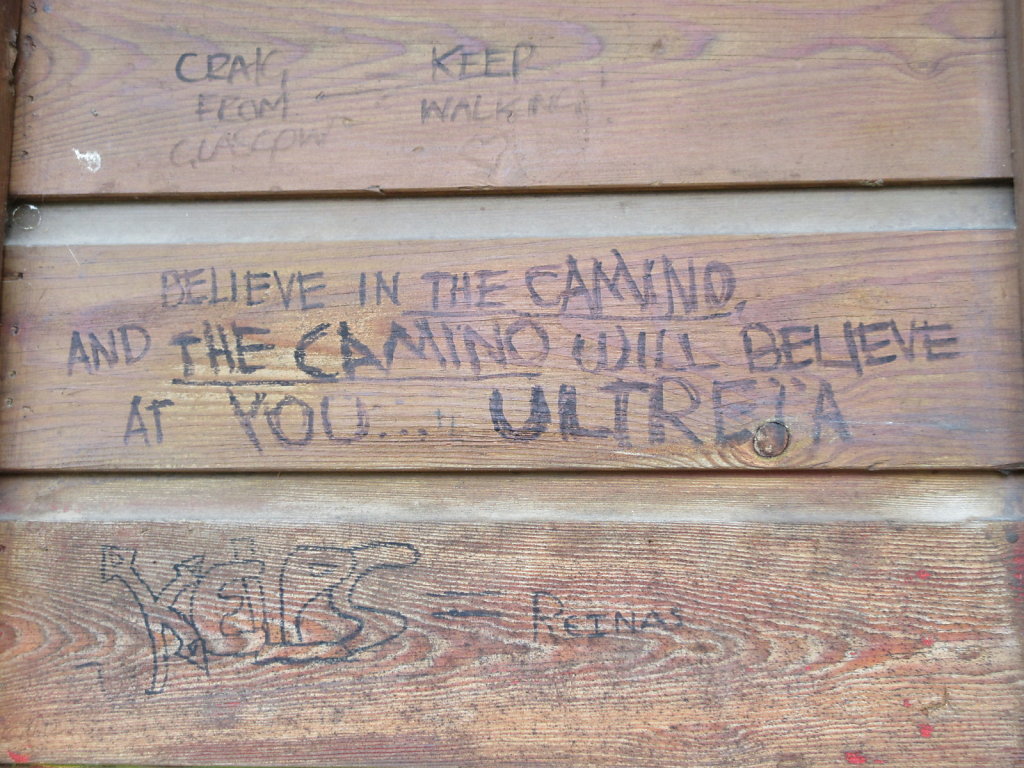 CRAIG
FROM
GLASGOW
KEEP
WALKING
BELIEVE IN THE CAMINO,
AND THE CAMINO WILL BELIEVE
AT YOU.... ULTREÏA
= REINAS